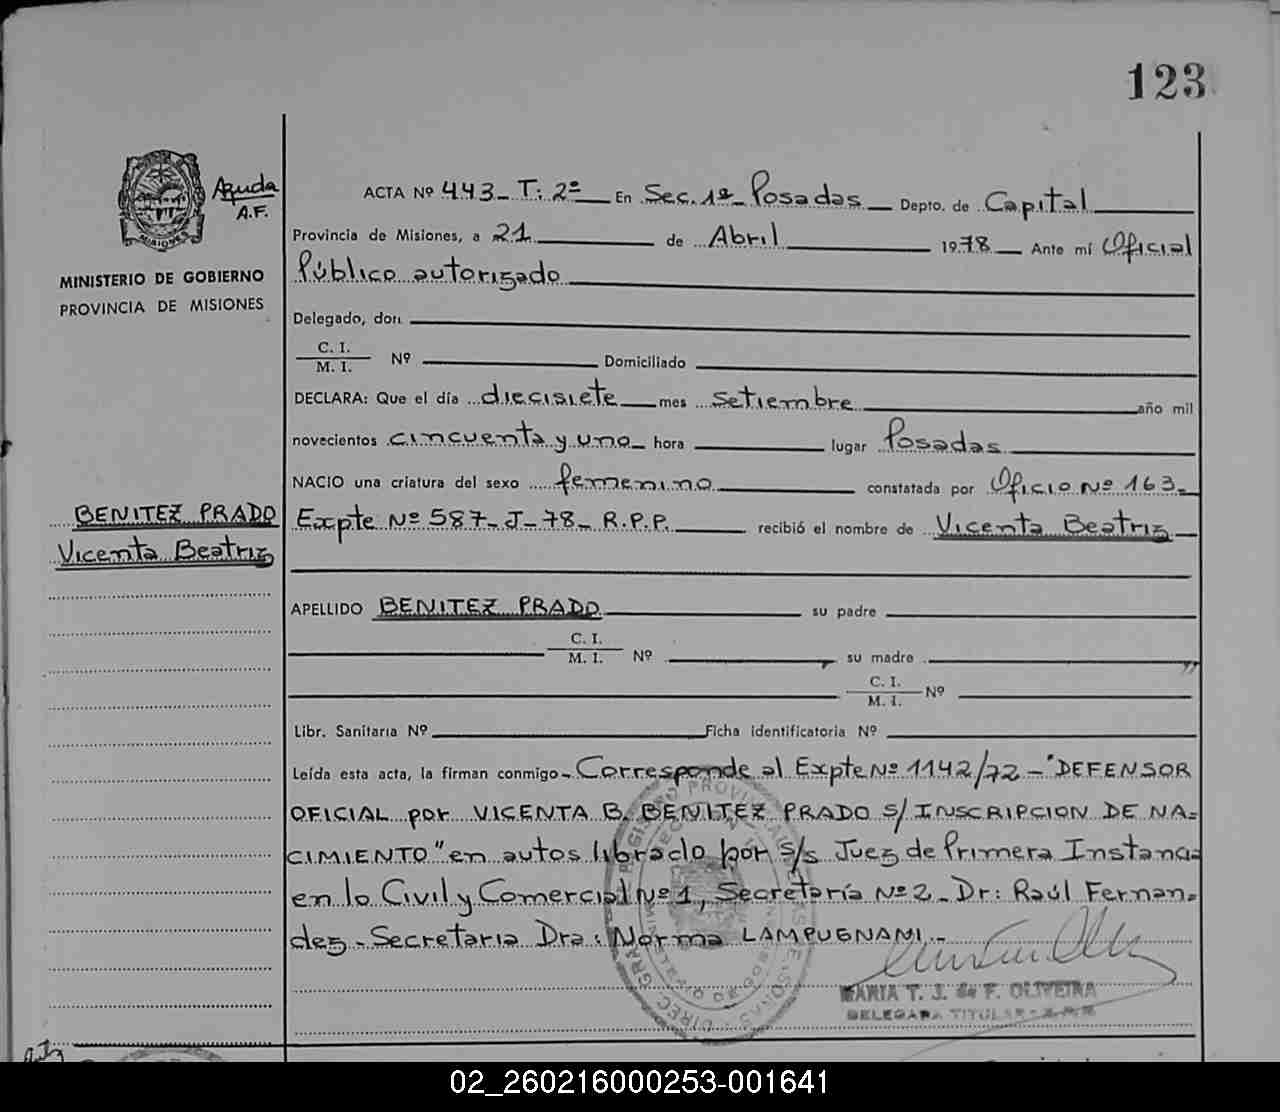 123
Ayuda
A.F.
MISIONES
MINISTERIO DE GOBIERNO
PROVINCIA DE MISIONES
BENITEZ PRADO
Vicenta Beatriz
ACTA Nº 443 - T: 2º En Sec. 1ª - Posadas Depto. de Capital
Provincia de Misiones, a 21 de Abril 1978 Ante mí Oficial
Público autorizado
Delegado, don
C. I.
M. I. Nº Domiciliado
DECLARA: Que el día diecisiete mes setiembre año mil
novecientos cincuenta y uno hora lugar Posadas
NACIO una criatura del sexo femenino constatada por Oficio Nº 163
Expte Nº 587 - J - 78 - R.P.P. recibió el nombre de Vicenta Beatriz
APELLIDO BENITEZ PRADO su padre
C. I.
M. I. Nº su madre
C. I.
M. I. Nº
Libr. Sanitaria Nº Ficha identificatoria Nº
Leída esta acta, la firman conmigo - Corresponde al Expte Nº 1142/72 - "DEFENSOR
OFICIAL por VICENTA B. BENITEZ PRADO S/ INSCRIPCION DE NA=
CIMIENTO" en autos librado por s/s Juez de Primera Instancia
en lo Civil y Comercial Nº 1, Secretaría Nº 2 - Dr: Raúl Fernan=
dez - Secretaria Dra: Norma LAMPUGNANI. -
MARIA T. J. de F. OLIVEIRA
DELEGADA TITULAR
02_260216000253-001641